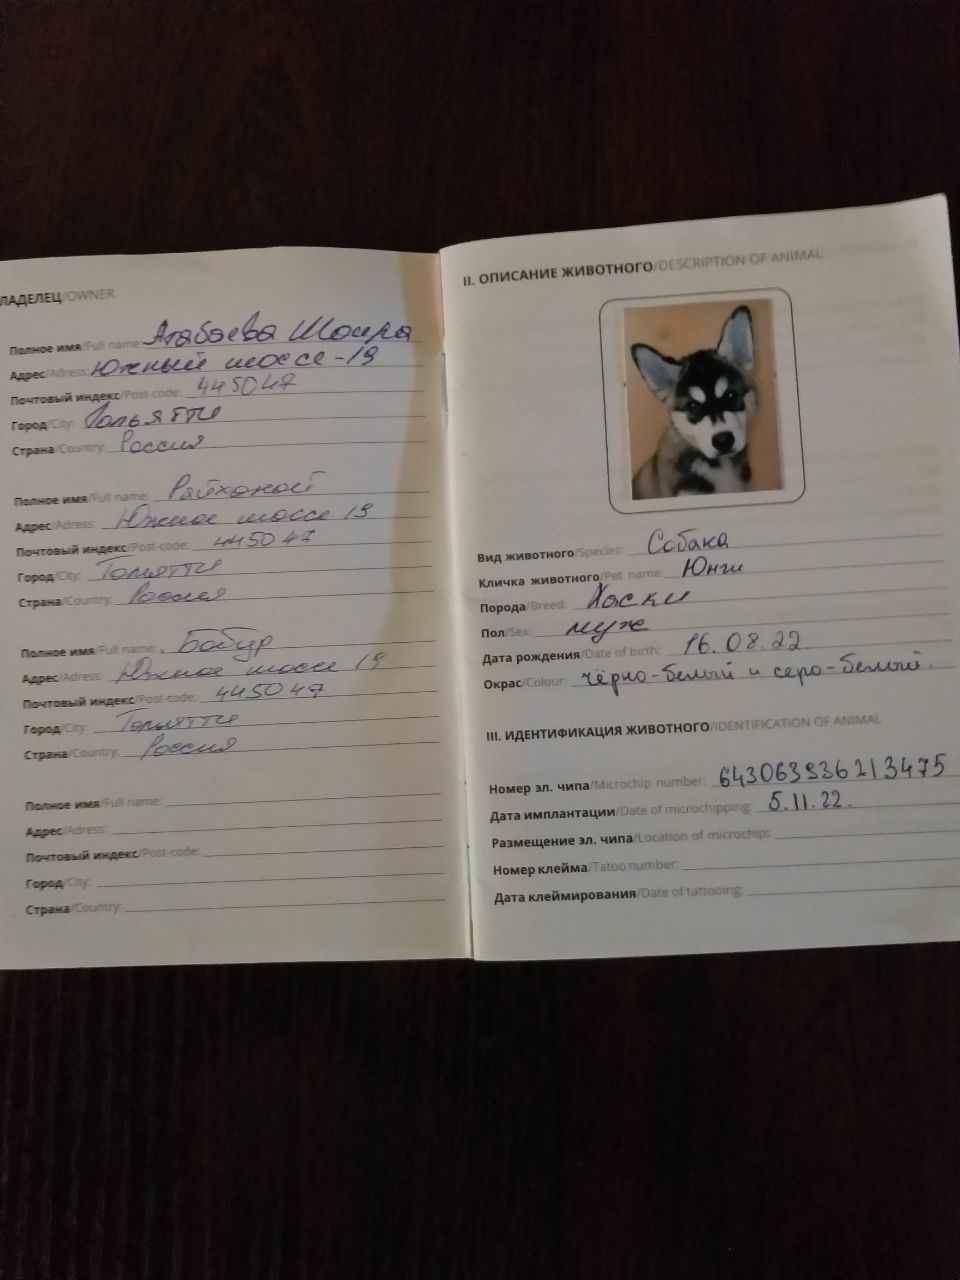 ЛАДЕЛЕЦ/OWNER
Полное имя/Full name: Атабаева Шоира
Адрес/Adress: Южный шоссе-19
Почтовый индекс/Post-code: 445047
Город/City: Тольятти
Страна/Country: Россия
Полное имя/Full name: Райхоной
Адрес/Adress: Южное шоссе 19
Почтовый индекс/Post-code: 445047
Город/City: Толятти
Страна/Country: Россия
Полное имя/Full name: Бобур
Адрес/Adress: Южное шоссе 19
Почтовый индекс/Post-code: 445047
Город/City: Толятти
Страна/Country: Россия
Полное имя/Full name:
Адрес/Adress:
Почтовый индекс/Post-code:
Город/City:
Страна/Country:
II. ОПИСАНИЕ ЖИВОТНОГО/DESCRIPTION OF ANIMAL
Вид животного/Species: Собака
Кличка животного/Pet name: Юнги
Порода/Breed: Хаски
Пол/Sex: муж
Дата рождения/Date of birth: 16.08.22
Окрас/Colour: чёрно-белый и серо-белый.
III. ИДЕНТИФИКАЦИЯ ЖИВОТНОГО/IDENTIFICATION OF ANIMAL
Номер эл. чипа/Microchip number: 643063936213475
Дата имплантации/Date of microchipping: 5.11.22.
Размещение эл. чипа/Location of microchip:
Номер клейма/Tatoo number:
Дата клеймирования/Date of tattooing: